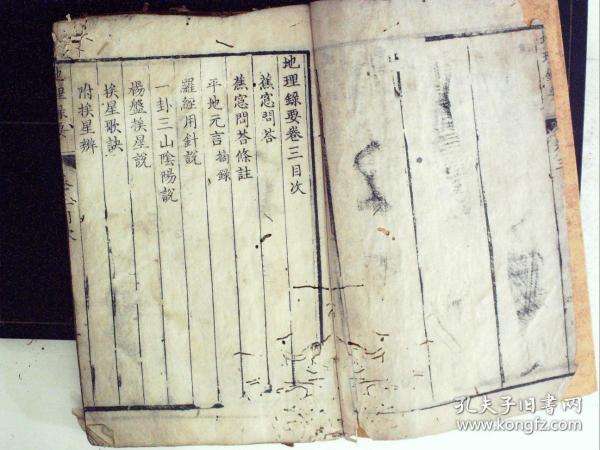 地理錄要卷三目次
蕉窓問答
蕉窓問答條註
平地元言摘錄
羅經用針說
一卦三山陰陽說
楊盤挨星說
挨星歌訣
附挨星辨
孔夫子旧书网
www.kongfz.com